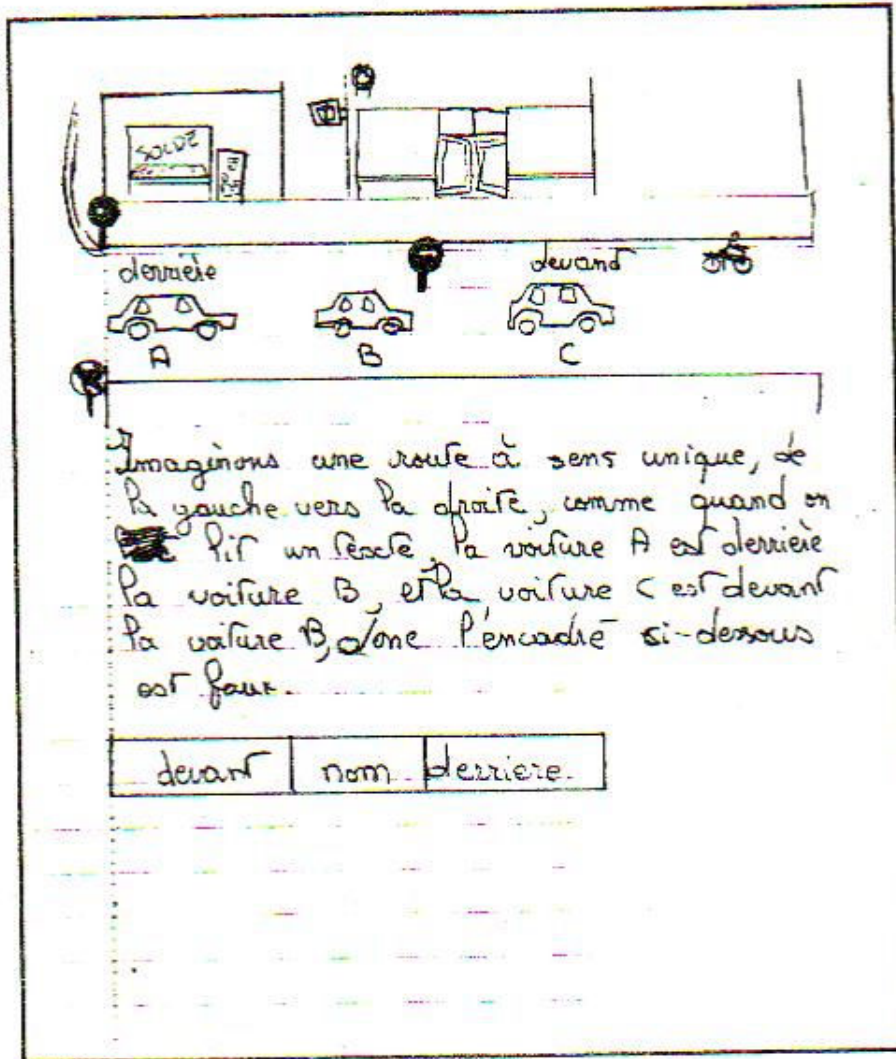 derrière devant
A B C
Imaginons une route à sens unique, de
la gauche vers la droite, comme quand on
lit un texte, la voiture A est derrière
la voiture B, et la voiture C est devant
la voiture B, donc l'encadré ci-dessous
est faux.
devant nom derriere.